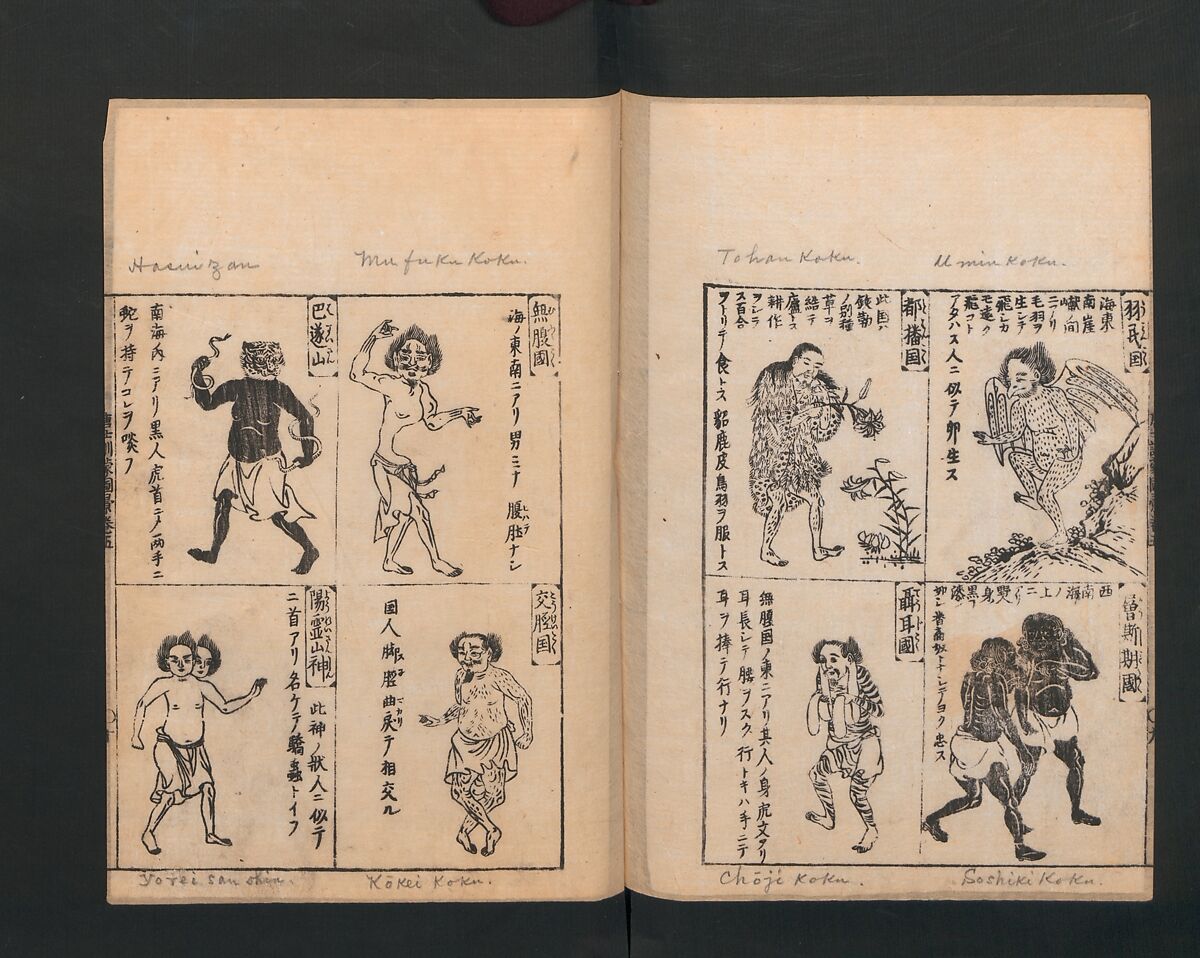 Tohan Koku.
U min Koku.
羽民国
海東
南崖
嶮ノ向
ニアリ
毛羽ヲ
生シテ
飛シカ
モ遠ク
飛コト
アタハス人ニ似テ卵生ス
都播国
此国ハ
鉄勒
ノ別種
草ヲ
結テ
廬トス
耕作
ヲシラ
ス百合
ヲトリテ食トス貂鹿皮鳥羽ヲ服トス
西南海ノ上ニアリ野人身黒フ漆
ノ如シ
聶耳國
無腹国ノ東ニアリ其人ノ身虎文アリ
耳長シテ腰ヲスク行トキハ手ニテ
耳ヲ捧テ行ナリ
Chōji Koku.
Soshiki Koku.
Hasuizan
Mu fuku Koku.
無腹國
海ノ東南ニアリ男ミナ腹肚ナシ
巴遂山
南海内ニアリ黒人虎首ニメ両手ニ
蛇ヲ持テコレヲ啖フ
交脛国
国人脚脛曲戻テ相交ル
陽靈山神
此神ノ状人ニ似テ
二首アリ名ケテ驕蟲トイフ
Yorei san shin.
Kōkei Koku.